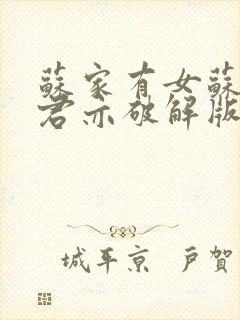 蘇家有女蘇
君亦破解版
城平京 戸賀